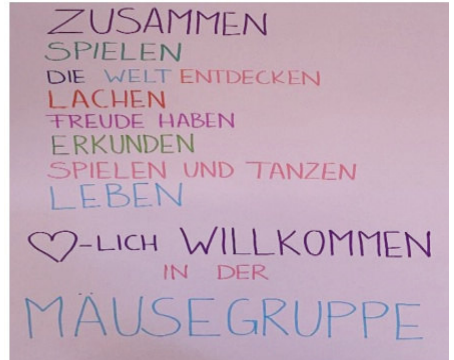 ZUSAMMEN
SPIELEN
DIE WELT ENTDECKEN
LACHEN
FREUDE HABEN
ERKUNDEN
SPIELEN UND TANZEN
LEBEN
♡-LICH WILLKOMMEN
IN DER
MÄUSEGRUPPE